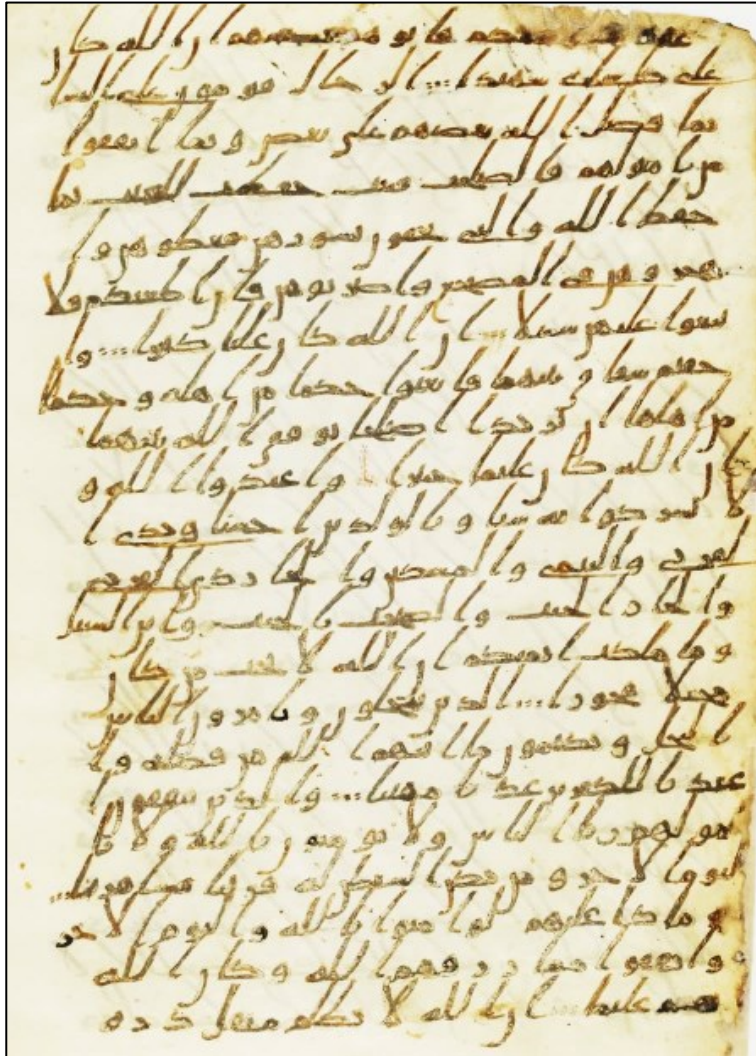 عقدت ايمنكم فاتوهم نصيبهم ان الله كان
على كل شى شهيدا الرجال قومون على النسا
بما فضل الله بعضهم على بعض وبما انفقوا
من امولهم فالصلحت قنتت حفظت للغيب بما
حفظ الله والتى تخفون نشوزهن فعظوهن وا
هجروهن فى المضجع واضربوهن فان اطعنكم فلا
تبغوا عليهن سبيلا ان الله كان عليا كبيرا وان
خفتم شقاق بينهما فابعثوا حكما من اهله وحكما
من اهلها ان يريدا اصلحا يوفق الله بينهما
ان الله كان عليما خبيرا واعبدوا الله و
لا تشركوا به شيا وبالولدين احسنا وبذى ا
لقربى واليتمى والمسكين والجار ذى القربى
والجار الجنب والصحب بالجنب وابن السبيل
وما ملكت ايمنكم ان الله لا يحب من كان
مختلا فخورا الذين يبخلون ويامرون الناس
بالبخل ويكتمون ما اتهم الله من فضله وا
عتدنا للكفرين عذابا مهينا والذين ينفقون ا
مولهم ريا الناس ولا يومنون بالله ولا با
ليوم الاخر ومن يكن الشيطن له قرينا فسا قرينا
وما ذا عليهم لو امنوا بالله واليوم الاخر
وانفقوا مما رزقهم الله وكان الله
بهم عليما ان الله لا يظلم مثقل ذرة